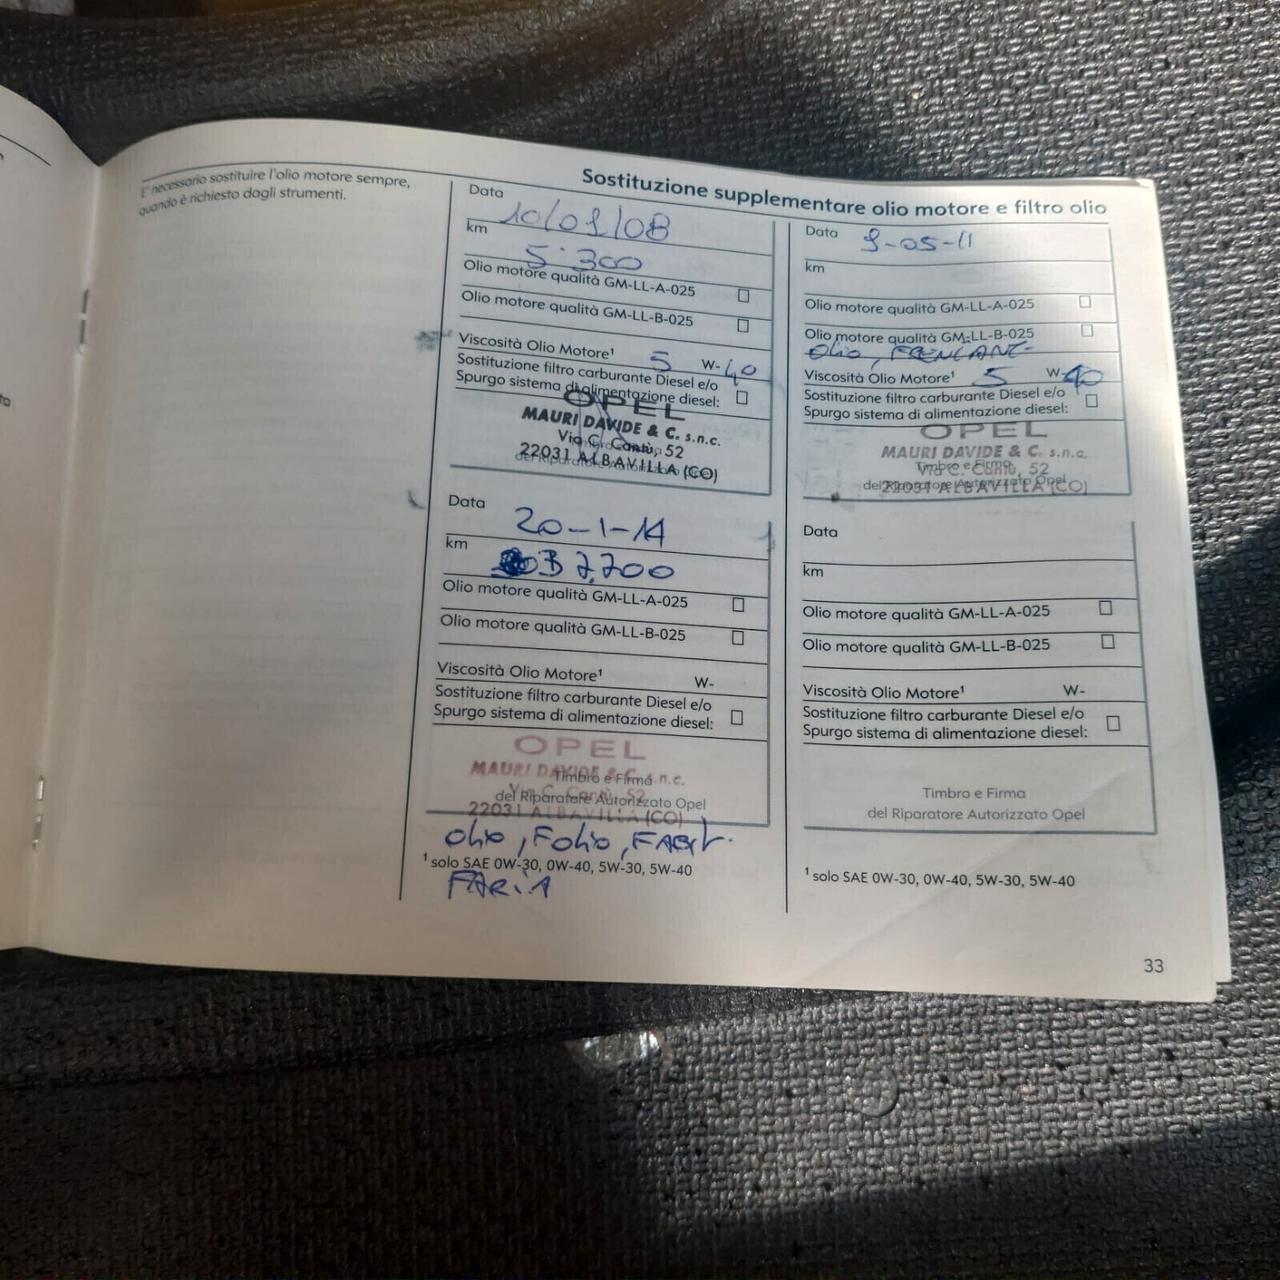 E' necessario sostituire l'olio motore sempre,
quando è richiesto dagli strumenti.
Sostituzione supplementare olio motore e filtro olio
Data 10/01/08
km 5.300
Olio motore qualità GM-LL-A-025
Olio motore qualità GM-LL-B-025
Viscosità Olio Motore¹ 5 W-40
Sostituzione filtro carburante Diesel e/o
Spurgo sistema di alimentazione diesel:
OPEL
MAURI DAVIDE & C. s.n.c.
Via C. Cantù, 52
22031 ALBAVILLA (CO)
del Riparatore Autorizzato Opel
Data 9-05-11
km
Olio motore qualità GM-LL-A-025
Olio motore qualità GM-LL-B-025
Olio,
Viscosità Olio Motore¹ 5 W-40
Sostituzione filtro carburante Diesel e/o
Spurgo sistema di alimentazione diesel:
OPEL
MAURI DAVIDE & C. s.n.c.
Via C. Cantù, 52
Timbro e Firma
22031 ALBAVILLA (CO)
del Riparatore Autorizzato Opel
Data 20-1-14
km 37.700
Olio motore qualità GM-LL-A-025
Olio motore qualità GM-LL-B-025
Viscosità Olio Motore¹ W-
Sostituzione filtro carburante Diesel e/o
Spurgo sistema di alimentazione diesel:
OPEL
MAURI DAVIDE & C. s.n.c.
Timbro e Firma
Via C. Cantù, 52
del Riparatore Autorizzato Opel
22031 ALBAVILLA (CO)
Olio, Folio,
¹ solo SAE 0W-30, 0W-40, 5W-30, 5W-40
FARIA
Data
km
Olio motore qualità GM-LL-A-025
Olio motore qualità GM-LL-B-025
Viscosità Olio Motore¹ W-
Sostituzione filtro carburante Diesel e/o
Spurgo sistema di alimentazione diesel:
Timbro e Firma
del Riparatore Autorizzato Opel
¹ solo SAE 0W-30, 0W-40, 5W-30, 5W-40
33